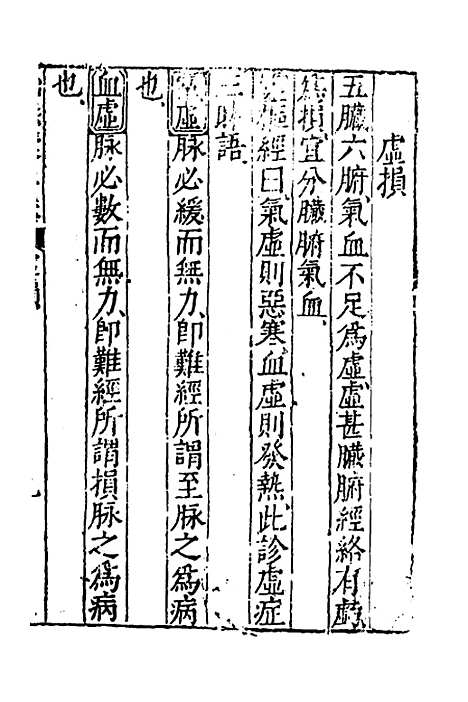 虛損
五臟六腑、氣血不足爲虛、虛甚臟腑經絡有虧
爲損、宜分臟腑氣血、
樞經曰、氣虛則惡寒、血虛則發熱、此診虛症
語、
虛脉必緩而無力、即難經所謂至脉之爲病
也、
血虛脉必數而無力、即難經所謂損脉之爲病
也、